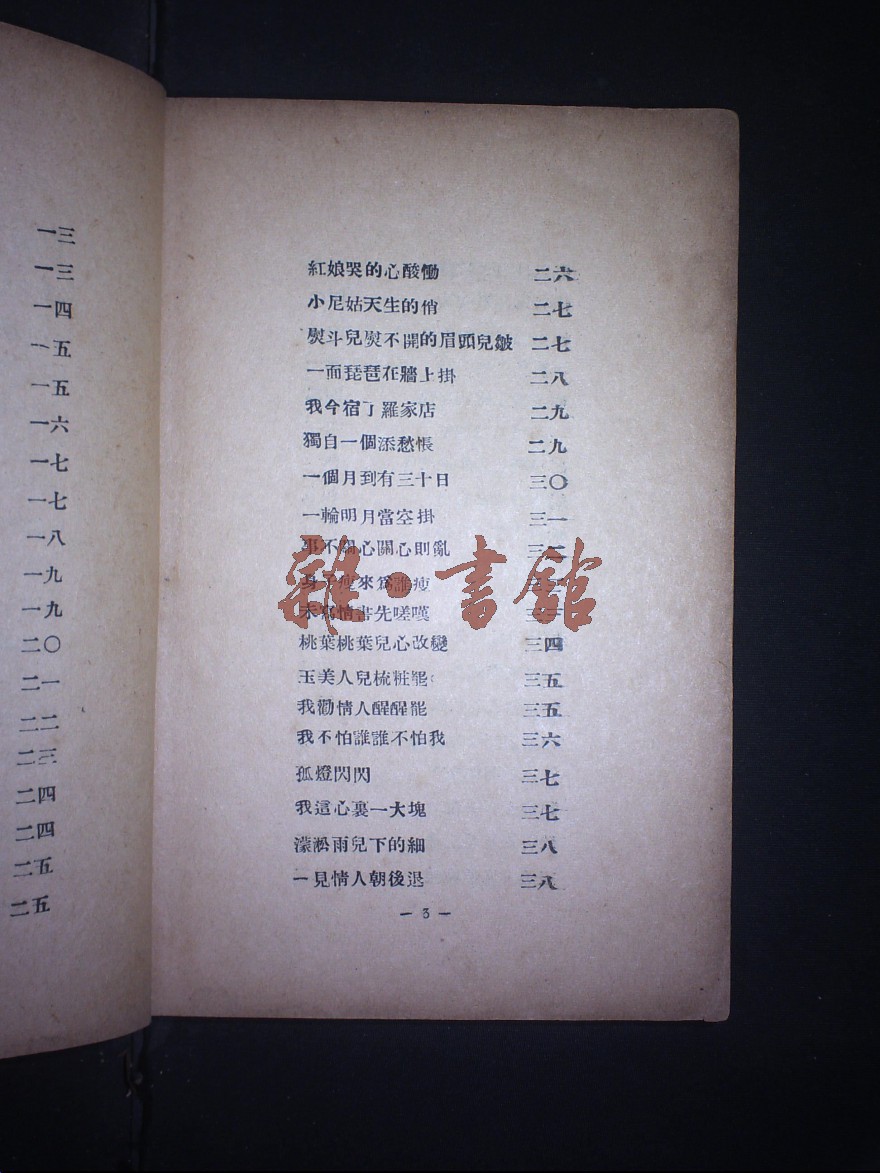 一三
一三
一四
一五
一五
一六
一七
一七
一八
一九
一九
二〇
二一
二二
二三
二四
二四
二五
二五
紅娘哭的心酸慟 二六
小尼姑天生的俏 二七
熨斗兒熨不開的眉頭兒皺 二七
一面琵琶在牆上掛 二八
我今宿了羅家店 二九
獨自一個添愁悵 二九
一個月到有三十日 三〇
一輪明月當空掛 三一
事不關心關心則亂 三二
身子瘦來爲誰瘦
未寫情書先嗟嘆
桃葉桃葉兒心改變 三四
玉美人兒梳粧罷 三五
我勸情人醒醒罷 三五
我不怕誰誰不怕我 三六
孤燈閃閃 三七
我這心裏一大塊 三七
濛淞雨兒下的細 三八
一見情人朝後退 三八
— 3 —
雜·書館